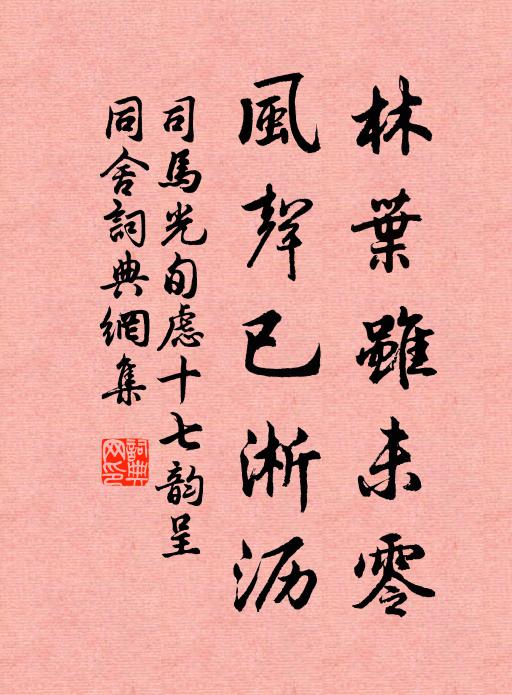 林葉雖未零
風聲已淅沥
司馬光旬慮十七韵呈
同舍詞典網集
詞典网印